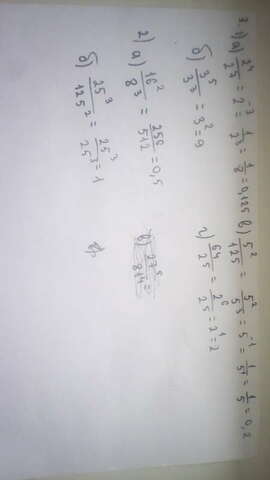 3 1) а) 2⁴/25 = 2⁻³ = 1/2³ = 1/8 = 0,125 в) 5²/125 = 5²/5³ = 5⁻¹ = 1/5¹ = 1/5 = 0,2
б) 3⁵/3³ = 3² = 9 г) 64/25 = 2⁶/25 = 2¹ = 2
2) а) 16²/8³ = 256/512 = 0,5
б) 25³/125² = 25³/25³ = 1